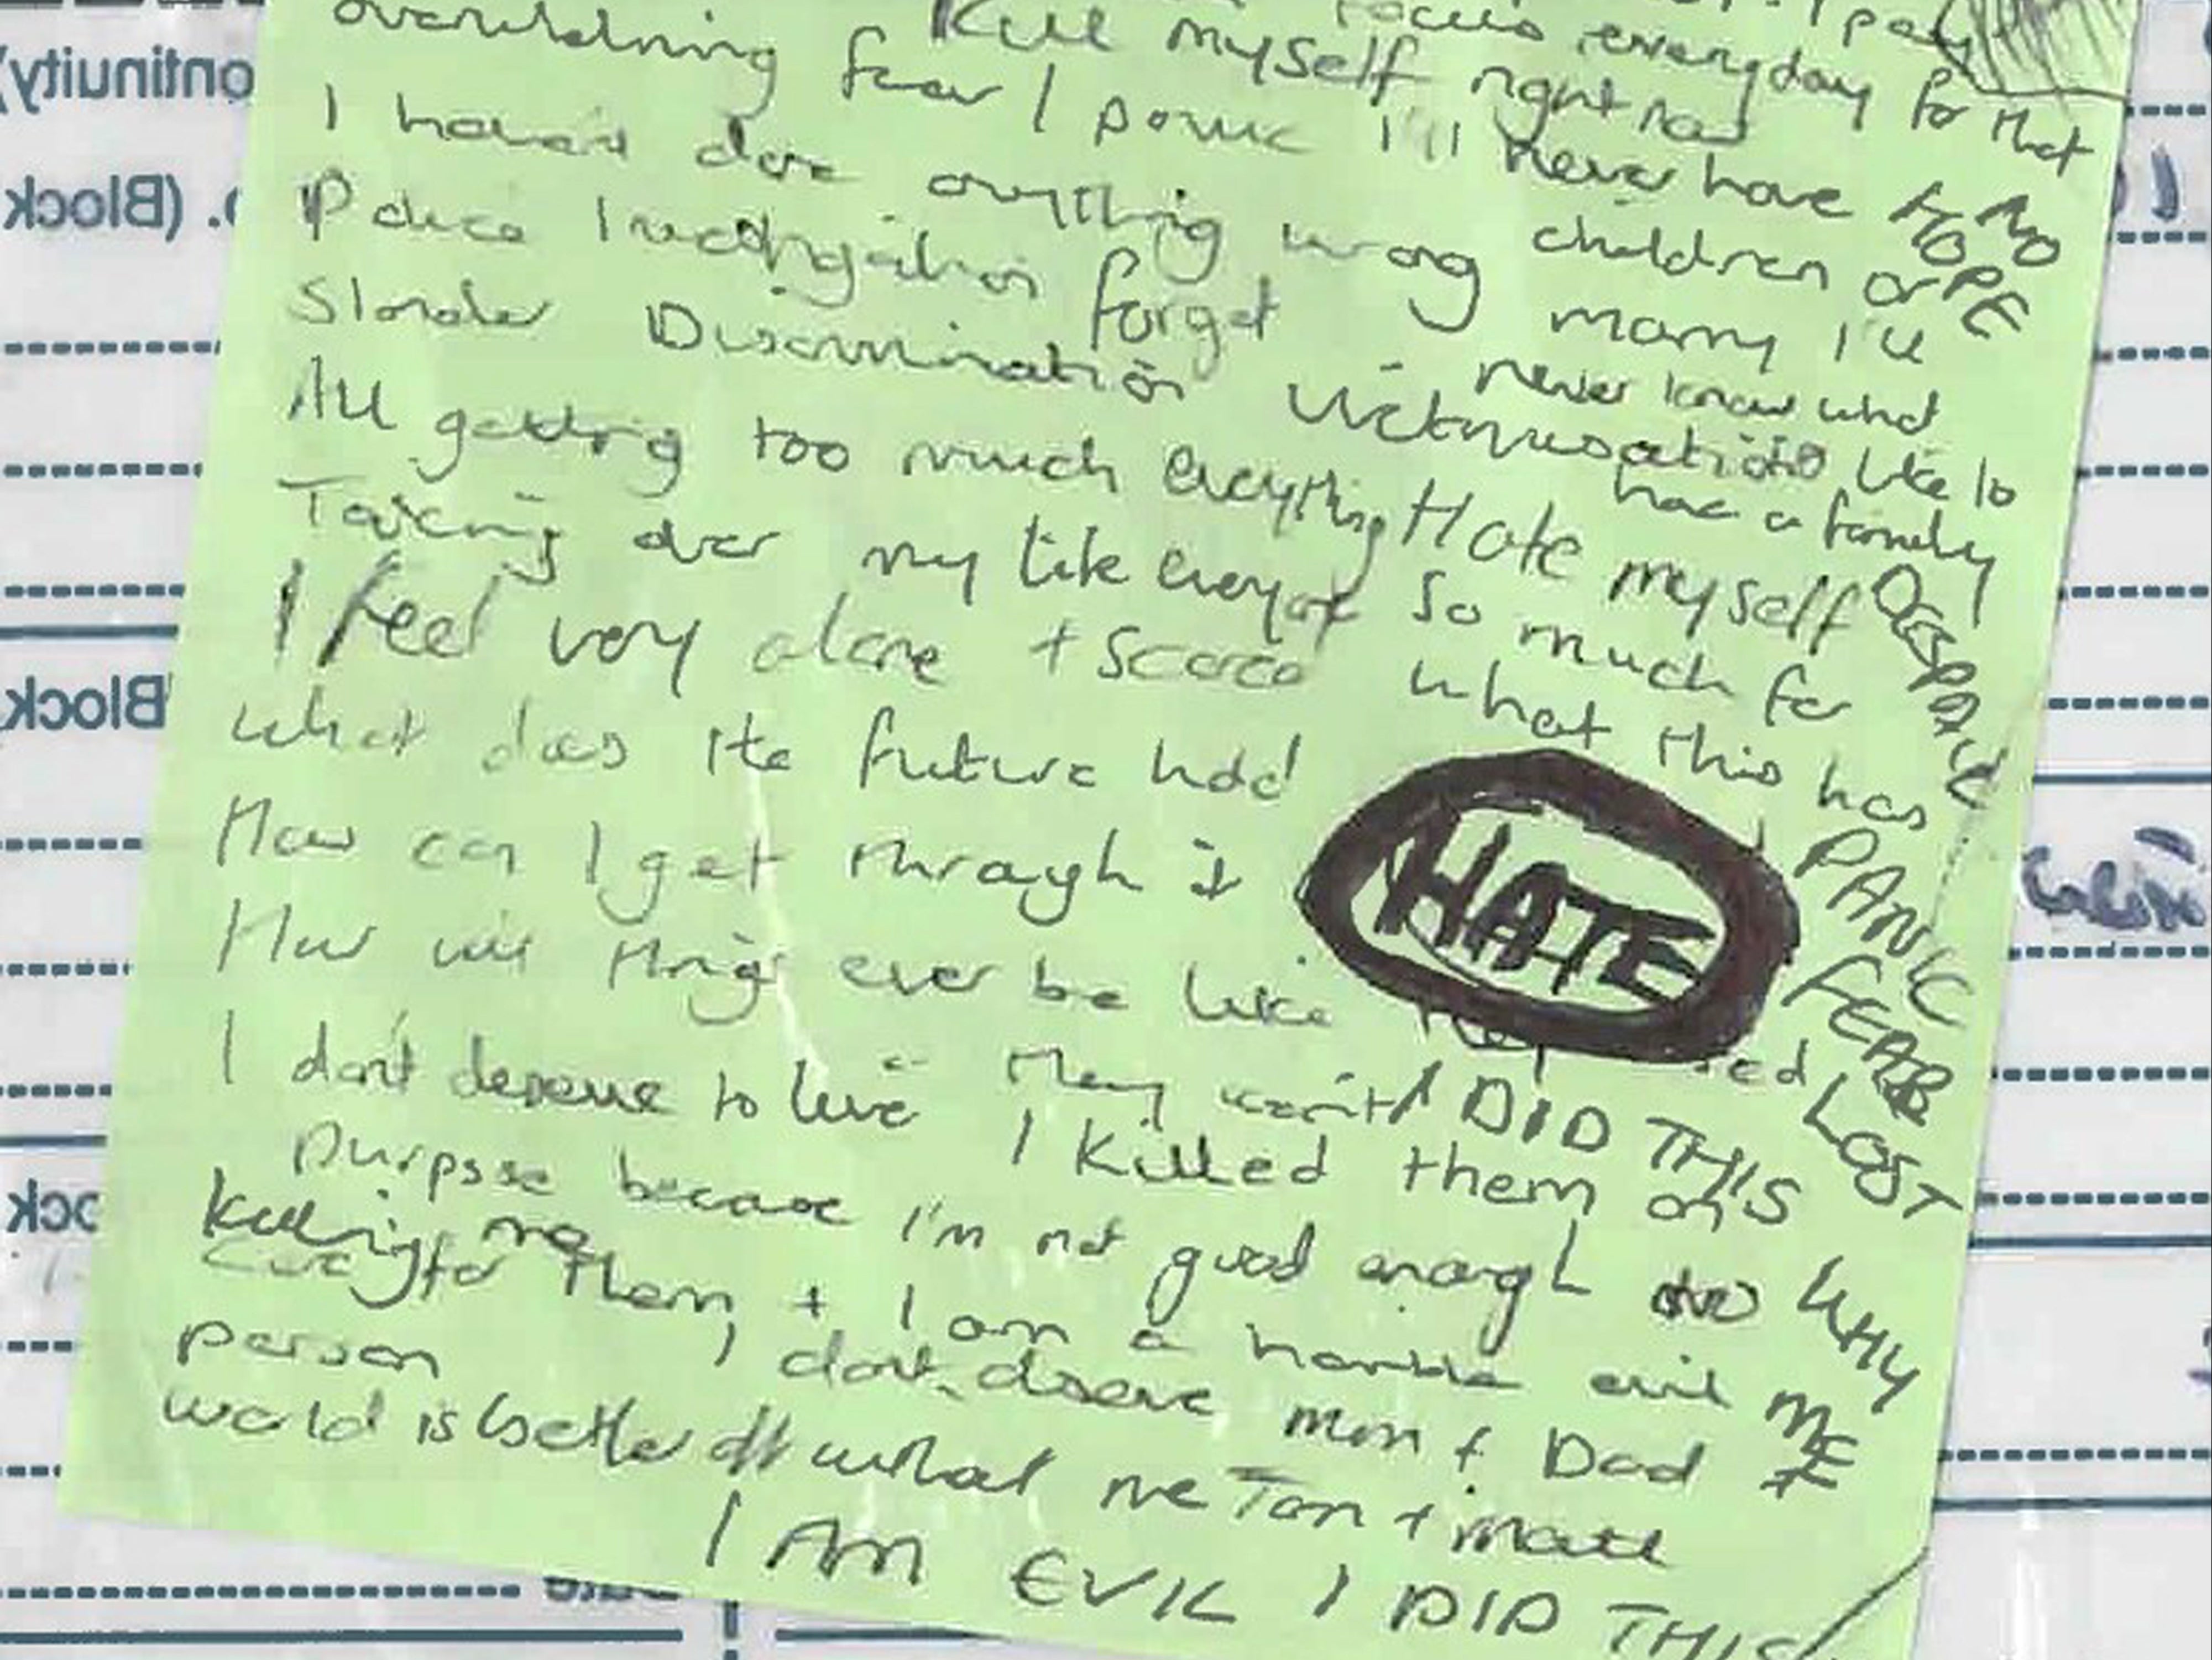 focus everyday for that
overwhelming fear I panic I'll never have
Kill myself right now
children or marry I'll
never know what
like to
have a family
NO
HOPE
I haven't done anything wrong
Police Investigation forget
Slander Discrimination Victimisation
All getting too much everything
Taking over my life everyone
Hate myself
so much for
what this has
I feel very alone + scared
What does the future hold
How can I get through it
How will things ever be like
HATE
DESPAIR
PANIC
FEAR
LOST
WHY
ME
I don't deserve to live They won't
I DID THIS
I killed them on
purpose because I'm not good enough to
care for them + I am a horrible evil
Killing me
person I don't deserve Mum + Dad
world is better off without me Tom + Matt
I AM EVIL I DID THIS
ontinuity)
(Block
Block
ock
Date